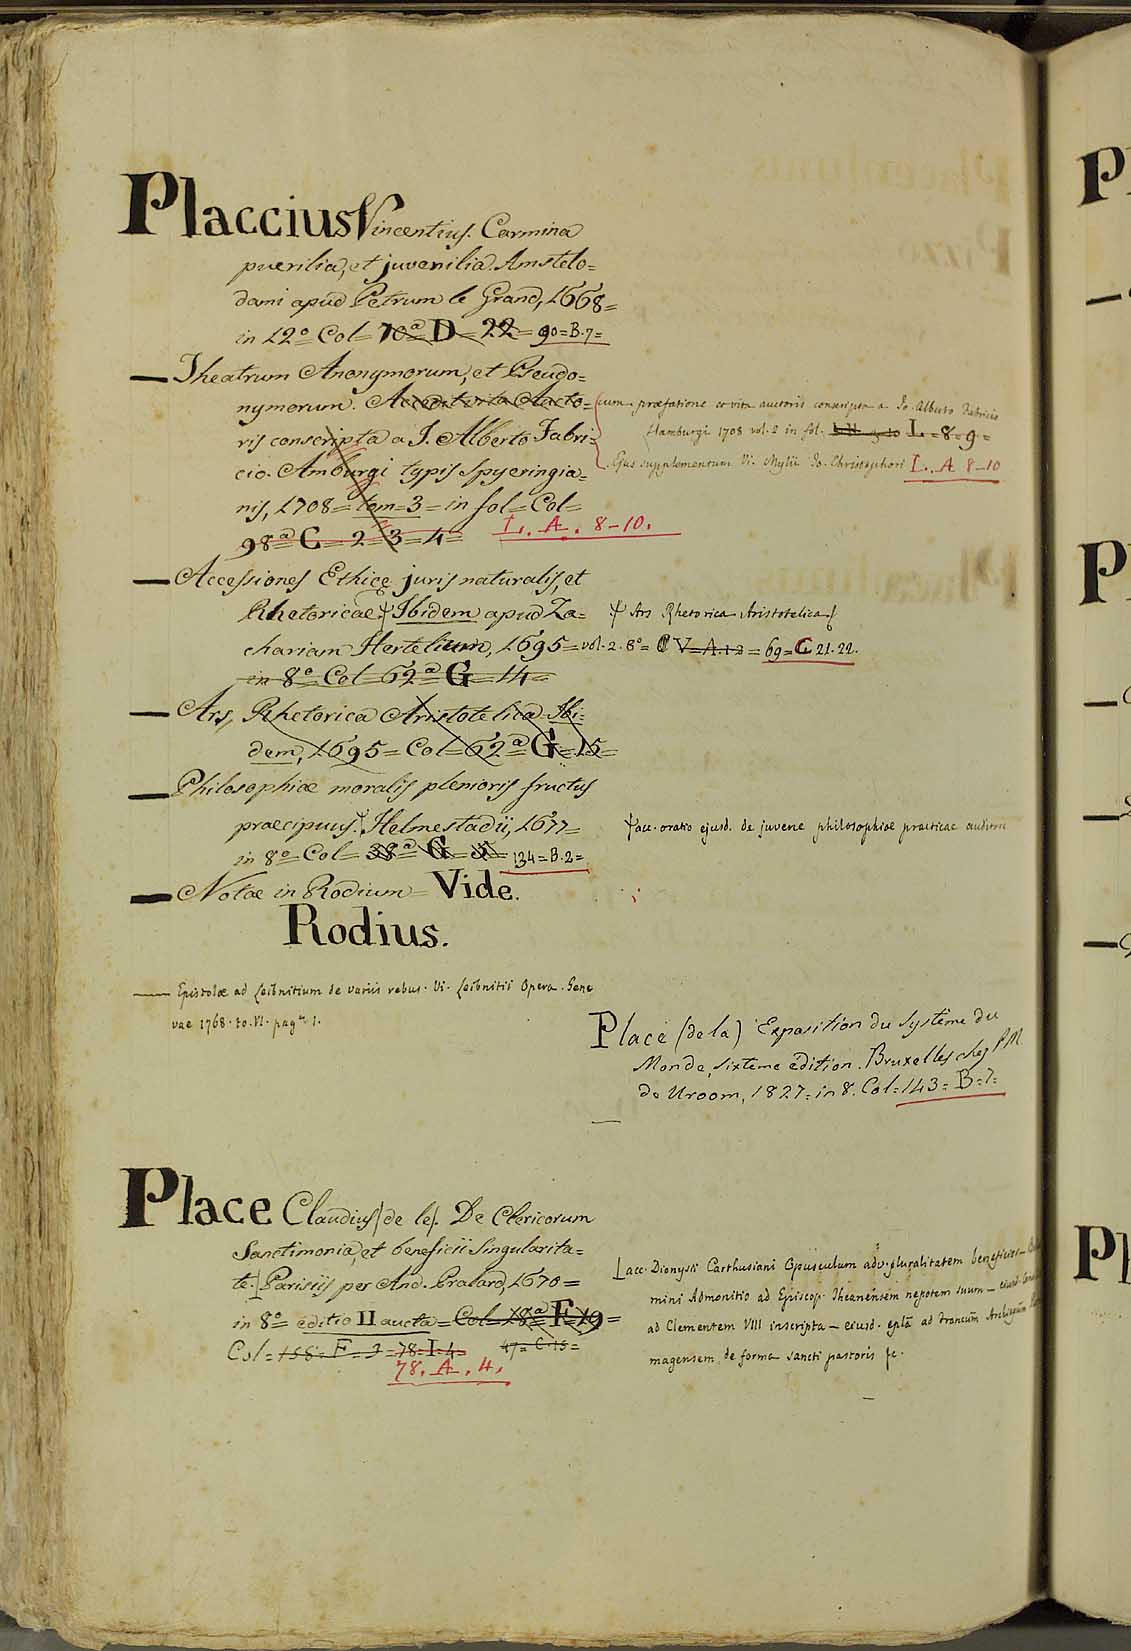 Placcius Vincentius. Carmina
puerilia, et juvenilia. Amstelo=
dami apud Petrum le Grand, 1668=
in 12º Col= 70ª D= 22= 90=B.7=
— Theatrum Anonymorum, et Pseudo=
nymorum. Accedit vita Aucto=
ris conscripta a J. Alberto Fabri=
cio. Amburgi typis Spyeringia=
nis, 1708= tom=3= in fol= Col=
98ª C= 2=3=4= L. A. 8-10.
cum præfatione et vita auctoris conscripta a Jo. Alberto Fabricio
Hamburgi 1708 vol. 2 in fol. L=8=9=
Ejus supplementum Vi. Mylii Jo. Christophori L. A 8-10
— Accessiones Ethicę juris naturalis, et
Rhetoricae Ibidem apud Za=
chariam Hertelium, 1695= vol. 2. 8º= C V=A.1 2= 69=C 21.22.
in 8º Col= 62ª G= 14=
Ars Rhetorica Aristotelica
— Ars, Rhetorica Aristotelica Ibi=
dem, 1695= Col= 62ª G=15=
— Philosophiæ moralis plenioris fructus
praecipuus. Helmestadii, 1677=
in 8º= Col= 38ª G= 35= 134=B.2=
acc. oratio ejusd. de juvene philosophiæ practicae
— Notæ in Rodium= Vide.
Rodius.
— Epistolæ ad Leibnitium de variis rebus. Vi. Leibnitii Opera. Gene
vae 1768. to. VI. pag. 1.
Place (de la) Exposition du Système du
Monde, sixteme édition. Bruxelles chez P.M.
de Vroom, 1827= in 8. Col=143= B=7=
Place Claudius (de le). De Clericorum
Sanctimonia, et beneficii Singularita=
te. Parisiis per And. Pralard, 1670=
in 8º= editio II aucta= Col= 18ª F=19=
Col= 158= F= 3= 78= I. 4= 47= C. 15=
78. A. 4.
acc. Dionysii Carthusiani Opusculum adv. pluralitatem beneficior—
mini Admonitio ad Episcop. Theanensem nepotem suum — ejusd.
ad Clementem VIII inscripta — ejusd. eplã ad
magensem de forma sancti pastoris &c.